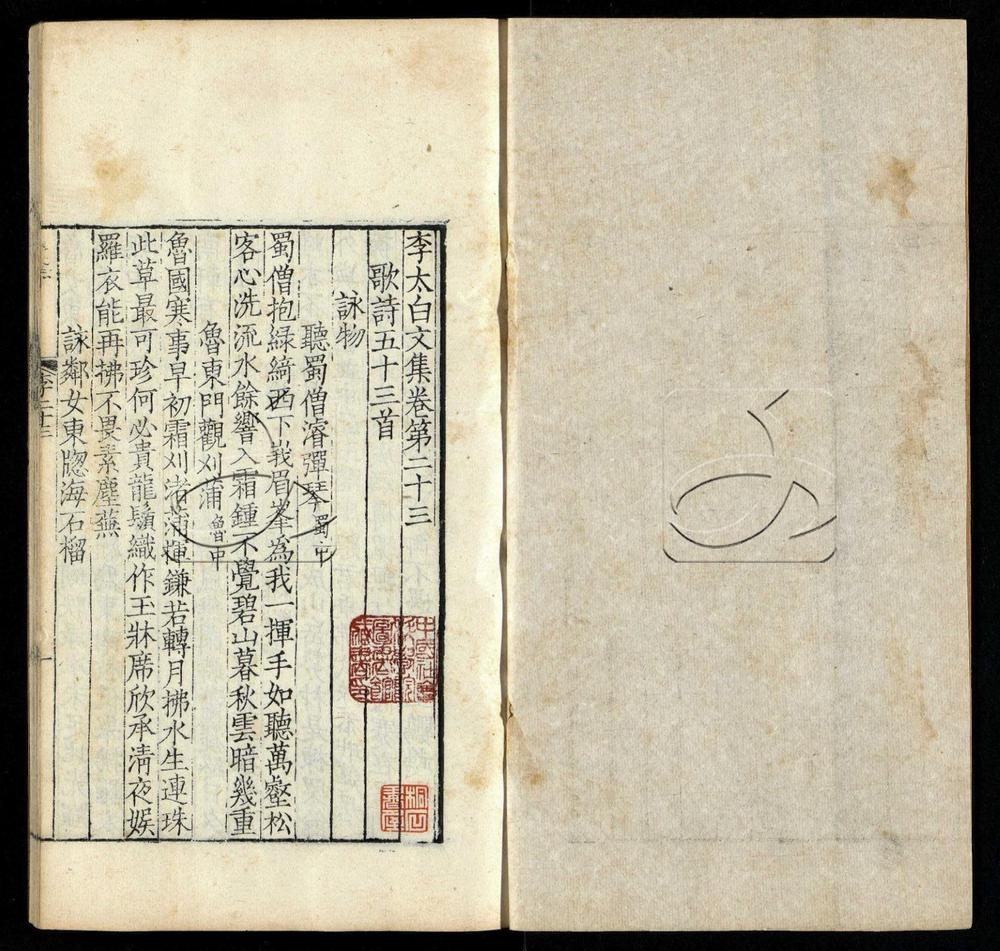 李太白文集卷第二十三
歌詩五十三首
詠物
聽蜀僧濬彈琴 蜀中
蜀僧抱綠綺西下峩眉峯為我一揮手如聽萬壑松
客心洗流水餘響入霜鍾不覺碧山暮秋雲暗幾重
魯東門觀刈蒲 魯中
魯國寒事早初霜刈渚蒲揮鎌若轉月拂水生連珠
此草最可珍何必貴龍鬚織作玉牀席欣承清夜娛
羅衣能再拂不畏素塵蕪
詠鄰女東牕海石榴